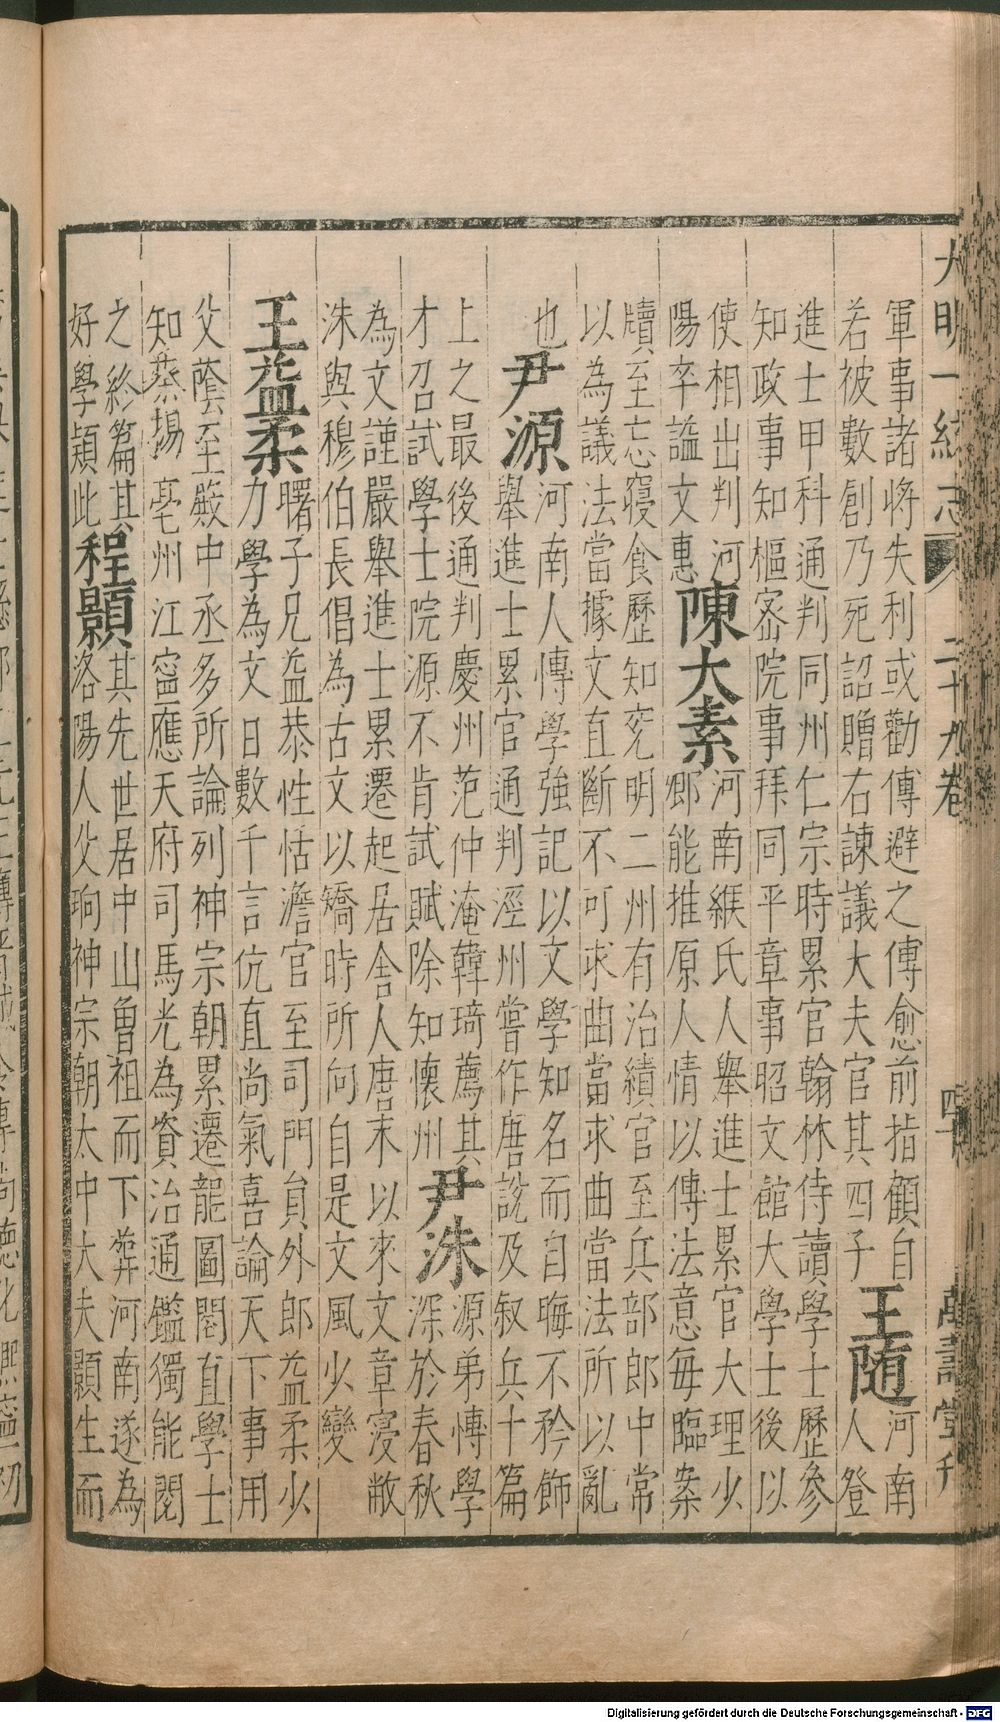 大明一統志 二十九卷 四十 萬壽堂刊
軍事諸將失利或勸傳避之傳愈前指顧自
若被數創乃死詔贈右諫議大夫官其四子
王随
河南
人登
進士甲科通判同州仁宗時累官翰林侍讀學士歷參
知政事知樞密院事拜同平章事昭文館大學士後以
使相出判河
陽卒謚文惠
陳大素
河南緱氏人舉進士累官大理少
卿能推原人情以傳法意每臨案
牘至忘寢食歷知兖明二州有治績官至兵部郎中常
以為議法當據文直斷不可求曲當求曲當法所以亂
也
尹源
河南人愽學強記以文學知名而自晦不矜飾
舉進士累官通判涇州嘗作唐說及叙兵十篇
上之最後通判慶州范仲淹韓琦薦其
才召試學士院源不肯試賦除知懷州
尹洙
源弟愽學
深於春秋
為文謹嚴舉進士累遷起居舍人唐末以來文章寖敝
洙與穆伯長倡為古文以矯時所向自是文風少變
王益柔
曙子兄益恭性恬澹官至司門貟外郎益柔少
力學為文日數千言伉直尚氣喜論天下事用
父蔭至殿中丞多所論列神宗朝累遷龍圖閣直學士
知蔡揚亳州江寧應天府司馬光為資治通鑑獨能閱
之終篇其
好學類此
程顥
其先世居中山曽祖而下葬河南遂為
洛陽人父珦神宗朝太中大夫顥生而
Digitalisierung gefördert durch die Deutsche Forschungsgemeinschaft - DFG